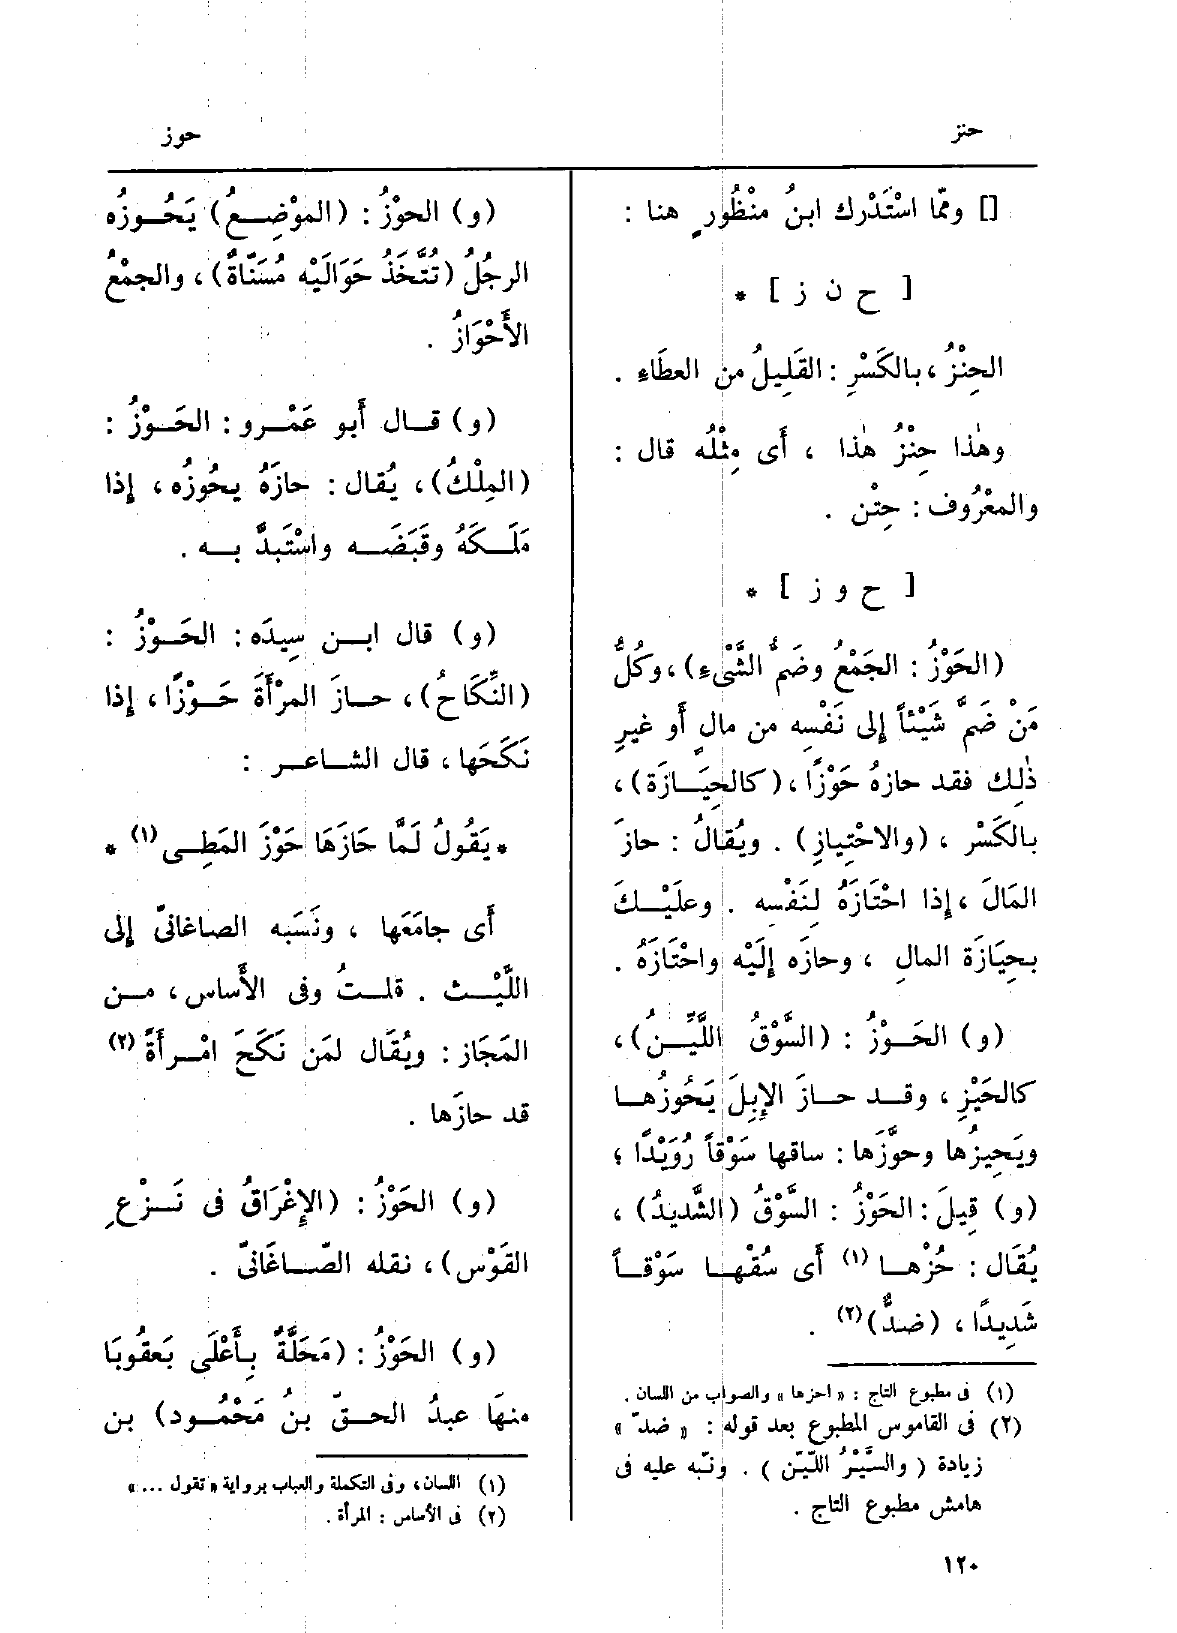 حنز
حوز
[] وممّا اسْتَدْرك ابنُ منْظُورٍ هنا :
[ ح ن ز ] *
الحِنْزُ ، بالكَسْرِ : القَلِيلُ من العطَاءِ .
وهٰذا حِنْزُ هٰذا ، أَى مِثْلُه قال :
والمعْرُوف : حِتْن .
[ ح و ز ] *
(الحَوْزُ : الجَمْعُ وضَمُّ الشَّىْءِ) ، وكلُّ
مَنْ ضَمَّ شَيْئاً إلى نَفْسِه من مالٍ أَو غيرِ
ذٰلك فقد حازهُ حَوْزًا ، (كالحِيَازَة) ،
بالكَسْر ، (والاحْتِيازِ) . ويُقالُ : حازَ
المَالَ ، إذا احْتَازَهُ لِنَفْسِه . وعلَيْكَ
بحِيَازَة المالِ ، وحازَه إلَيْه واحْتَازَهُ .
(و) الحَوْزُ : (السَّوْقُ اللَّيِّنُ) ،
كالحَيْزِ ، وقد حازَ الإبِلَ يَحُوزُها
ويَحِيزُها وحوَّزَها : ساقها سَوْقاً رُوَيْدًا ؛
(و) قِيلَ : الحَوْزُ : السَّوْقُ (الشَّديدُ) ،
يُقَال : حُزْها (١) أَى سُقْها سَوْقاً
شَدِيدًا ، (ضدٌّ) (٢) .
(١) فى مطبوع التاج : « احزها » والصواب من اللسان .
(٢) فى القاموس المطبوع بعد قوله : « ضدّ »
زيادة ( والسَّيْرُ اللّيّن ) . ونبّه عليه فى
هامش مطبوع التاج .
(و) الحَوْزُ : (الموْضِعُ) يَحُوزُه
الرجُلُ (تُتَّخَذُ حَوَالَيْه مُسَنّاةٌ) ، والجمْعُ
الأَحْوَازُ .
(و) قال أَبو عَمْرو : الحَوْزُ :
(المِلْكُ) ، يُقال : حازَهُ يحُوزُه ، إذا
مَلَكَهُ وقَبَضَه واسْتَبدَّ به .
(و) قال ابن سِيدَه : الحَوْزُ :
(النِّكَاحُ) ، حازَ المرْأَةَ حَوْزًا ، إذا
نَكَحَها ، قال الشاعر :
* يَقُولُ لَمَّا حَازَهَا حَوْزَ المَطِى (١) *
أَى جامَعَها ، ونَسَبَه الصاغانىّ إلى
اللَّيْث . قلتُ وفى الأَساس ، من
المَجَاز : ويُقَال لمَن نَكَحَ امْرأَةً (٢)
قد حازَها .
(و) الحَوْزُ : (الإغْرَاقُ فى نَزْعِ
القَوْس) ، نقله الصّاغَانىّ .
(و) الحَوْزُ : (مَحَلَّةٌ بِأَعْلَى بَعقُوبَا
منهَا عبدُ الحقّ بنُ مَحْمُود) بن
(١) اللسان ، وفى التكملة والعباب برواية « تقول ... »
(٢) فى الأساس : المرأة .
١٢٠